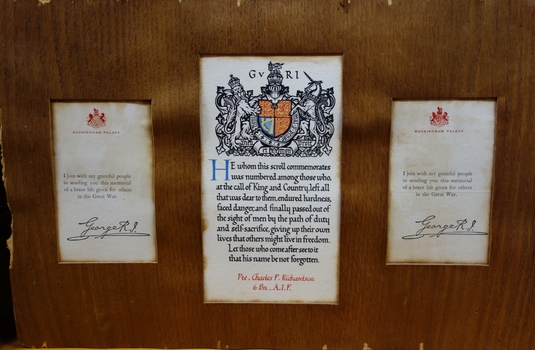 BUCKINGHAM PALACE
I join with my grateful people
in sending you this memorial
of a brave life given for others
in the Great War.
George R.I.
G V R I
HE whom this scroll commemorates
was numbered among those who,
at the call of King and Country, left all
that was dear to them, endured hardness,
faced danger, and finally passed out of
the sight of men by the path of duty
and self-sacrifice, giving up their own
lives that others might live in freedom.
Let those who come after see to it
that his name be not forgotten.
Pte. Charles F. Richardson
6 Bn. A.I.F.
BUCKINGHAM PALACE
I join with my grateful people
in sending you this memorial
of a brave life given for others
in the Great War.
George R.I.